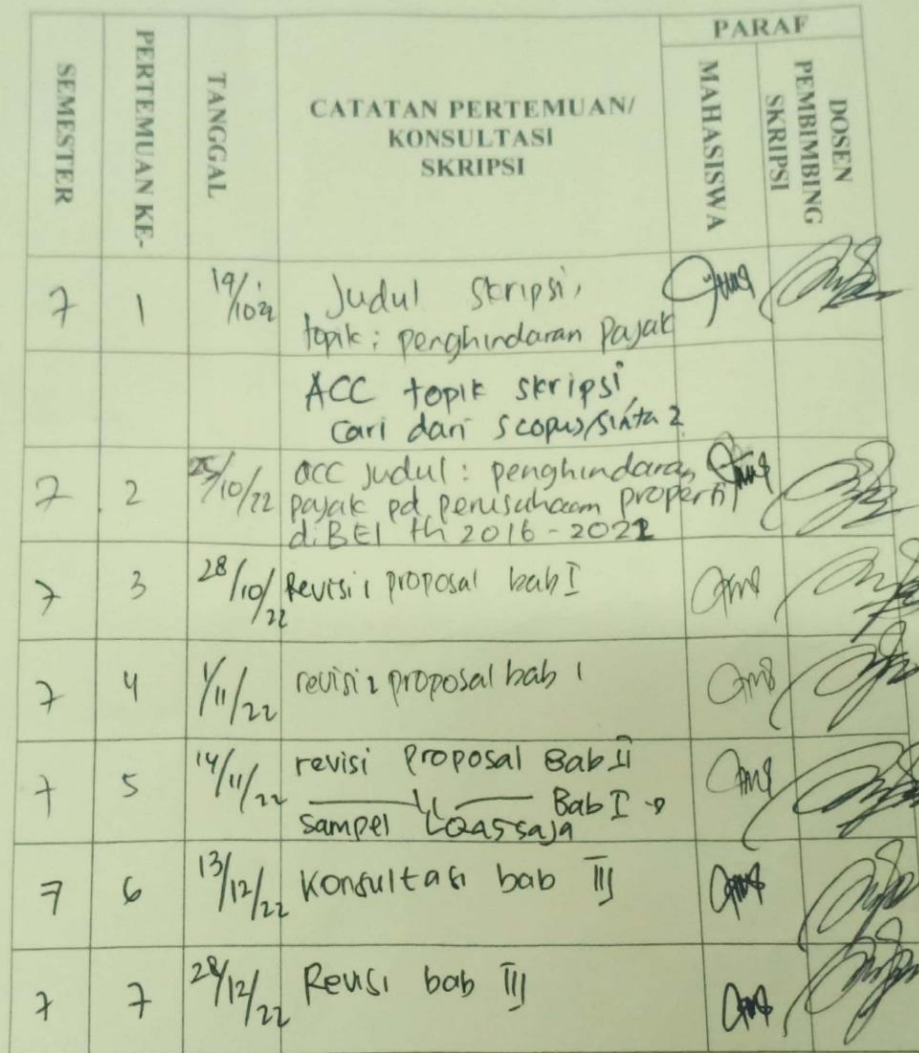 SEMESTER
PERTEMUAN KE-
TANGGAL
CATATAN PERTEMUAN/
KONSULTASI
SKRIPSI
PARAF
MAHASISWA
DOSEN
PEMBIMBING
SKRIPSI
7 1 Judul skripsi,
topik : penghindaran pajak
ACC topik skripsi
cari dari scopus/sinta 2
7 2 25/10/22 acc judul : penghindaran
pajak pd perusahaan properti
di BEI th 2016 - 2021
7 3 28/10/22 Revisi 1 proposal bab I
7 4 1/11/22 revisi 2 proposal bab 1
7 5 14/11/22 revisi proposal Bab II
Bab I
sampel LQ45 saja
7 6 13/12/22 Konsultasi bab III
7 7 28/12/22 Revisi bab III